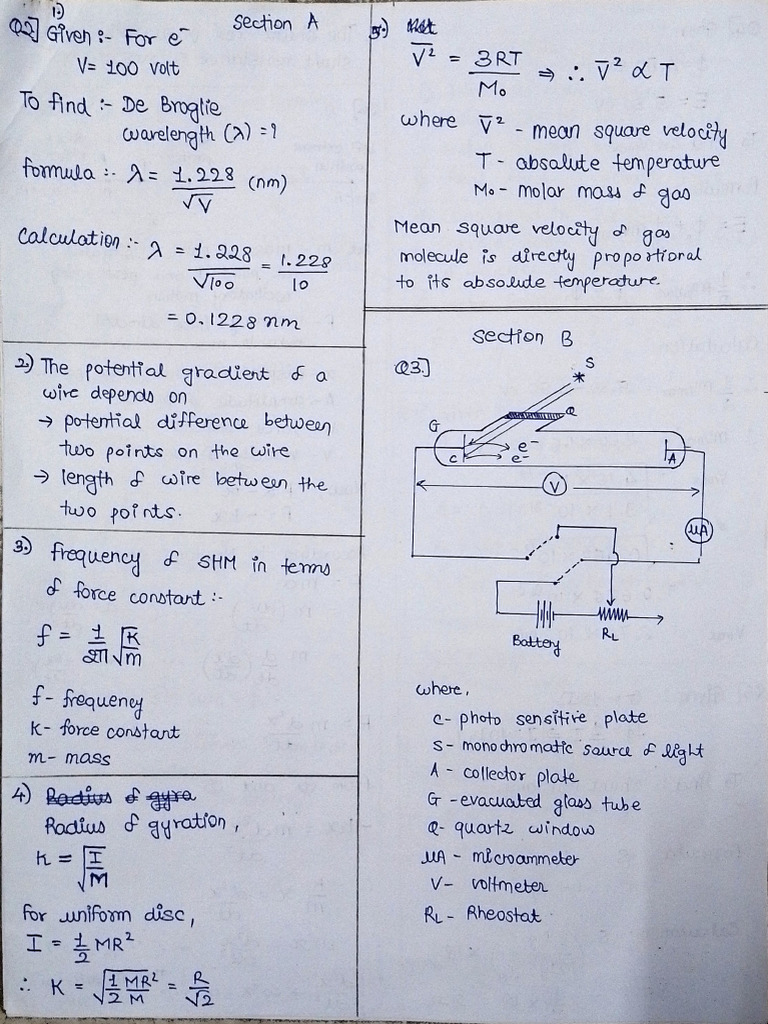 Section A
Q2] 1.) Given :- For e⁻
V= 100 volt
To find :- De Broglie
wavelength (λ) = ?
formula :- λ = 1.228/√V (nm)
Calculation :- λ = 1.228/√100 = 1.228/10
= 0.1228 nm
2.) The potential gradient of a
wire depends on
→ potential difference between
two points on the wire
→ length of wire between the
two points.
3.) frequency of SHM in terms
of force constant :-
f = 1/2π √K/m
f - frequency
K - force constant
m - mass
4) Radius of gyra
Radius of gyration,
K = √I/M
for uniform disc,
I = 1/2 MR²
∴ K = √1/2 MR²/M = R/√2
5.)
V̄² = 3RT/M₀ ⇒ ∴ V̄² ∝ T
where V̄² - mean square velocity
T - absolute temperature
M₀ - molar mass of gas
Mean square velocity of gas
molecule is directly propostional
to its absolute temperature.
Section B
Q3.]
S
Q
G
C
e⁻
e⁻
A
V
μA
Battery
RL
where,
C - photo sensitive plate
S - monochromatic source of light
A - collector plate
G - evacuated glass tube
Q - quartz window
μA - microammeter
V - voltmeter
RL - Rheostat